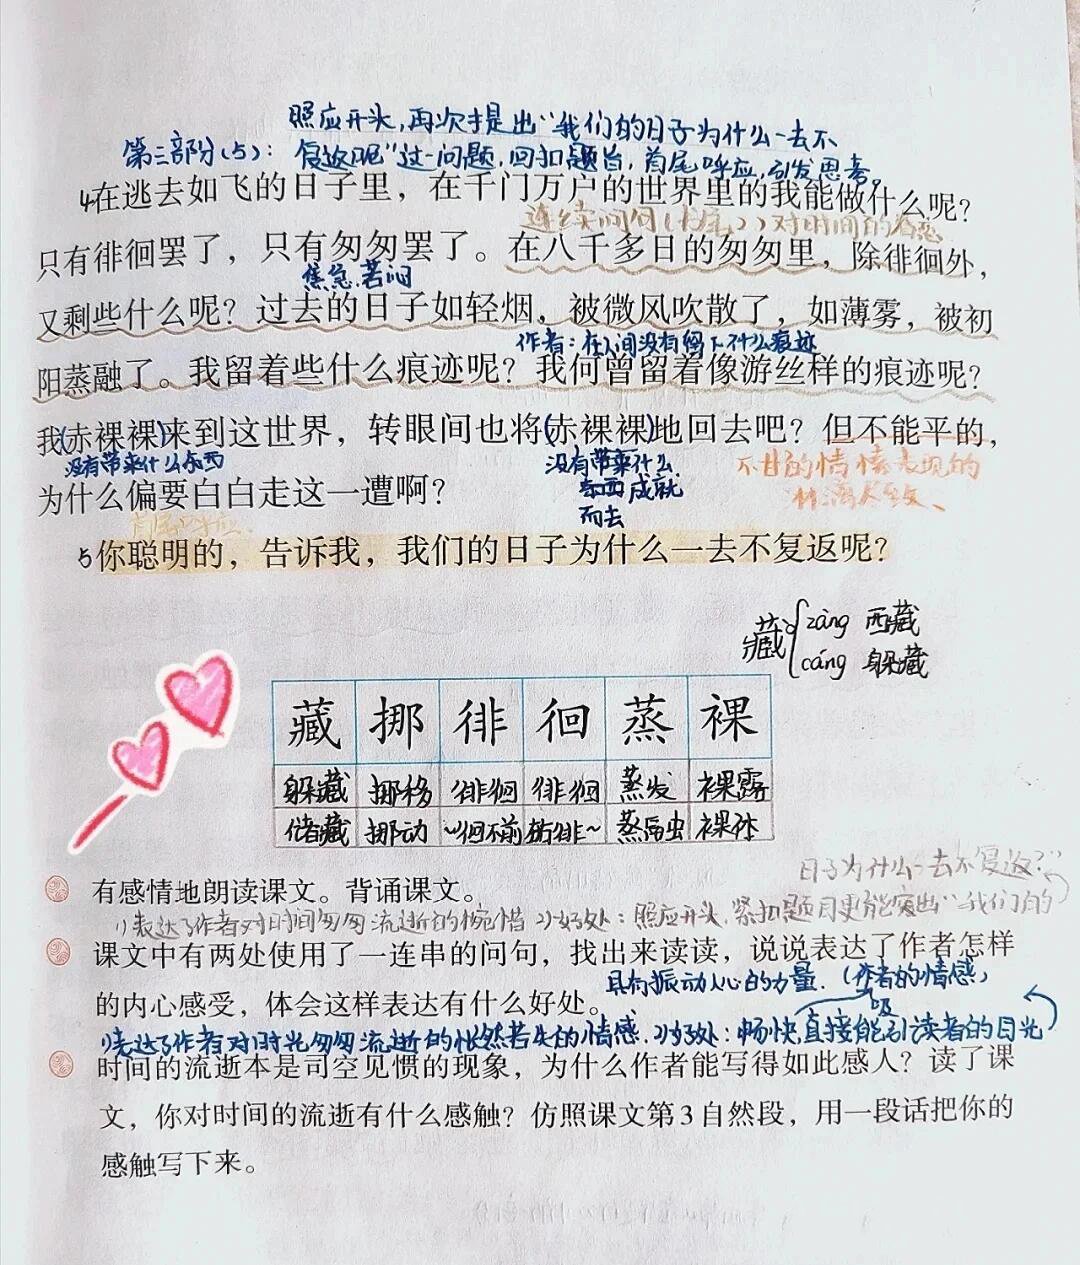 照应开头,再次才提出"我们的日子为什么一去不
第三部分(5): 复返呢"这一问题,回扣题旨,首尾呼应,引发思考。
4在逃去如飞的日子里，在千门万户的世界里的我能做什么呢？
连续问句
对时间的
只有徘徊罢了，只有匆匆罢了。在八千多日的匆匆里，除徘徊外，
焦急.苦闷
又剩些什么呢？过去的日子如轻烟，被微风吹散了，如薄雾，被初
作者:在人间没有留下什么痕迹
阳蒸融了。我留着些什么痕迹呢？我何曾留着像游丝样的痕迹呢？
我(赤裸裸)来到这世界，转眼间也将(赤裸裸)地回去吧？但不能平的，
没有带来什么东西 没有带来什么 不甘的情绪表现的
为什么偏要白白走这一遭啊？ 东西成就 淋漓尽致、
而去
首尾呼应.
5你聪明的，告诉我，我们的日子为什么一去不复返呢？
藏 zàng 西藏
cáng 躲藏
藏 挪 徘 徊 蒸 裸
躲藏 挪移 徘徊 徘徊 蒸发 裸露
储藏 挪动 ~徊不前 徘~ 蒸 裸体
日子为什么一去不复返?"
有感情地朗读课文。背诵课文。
1)表达了作者对时间匆匆流逝的惋惜 2)好处:照应开头,紧扣题目更能突出"我们的
课文中有两处使用了一连串的问句，找出来读读，说说表达了作者怎样
具有振动人心的力量.(作者的情感)
的内心感受，体会这样表达有什么好处。
吸
1)表达了作者对时光匆匆流逝的怅然若失的情感.2)好处:畅快,直接能引读者的目光
时间的流逝本是司空见惯的现象，为什么作者能写得如此感人？读了课
文，你对时间的流逝有什么感触？仿照课文第3自然段，用一段话把你的
感触写下来。